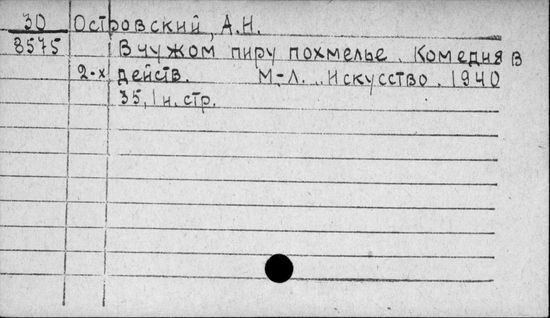 30 Островский, А.Н.
8575 В чужом пиру похмелье. Комедия в
2-х действ. М.-Л. „Искусство. 1940
35, 1 н. стр.